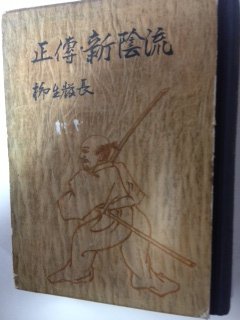 正傳・新陰流
柳生厳長